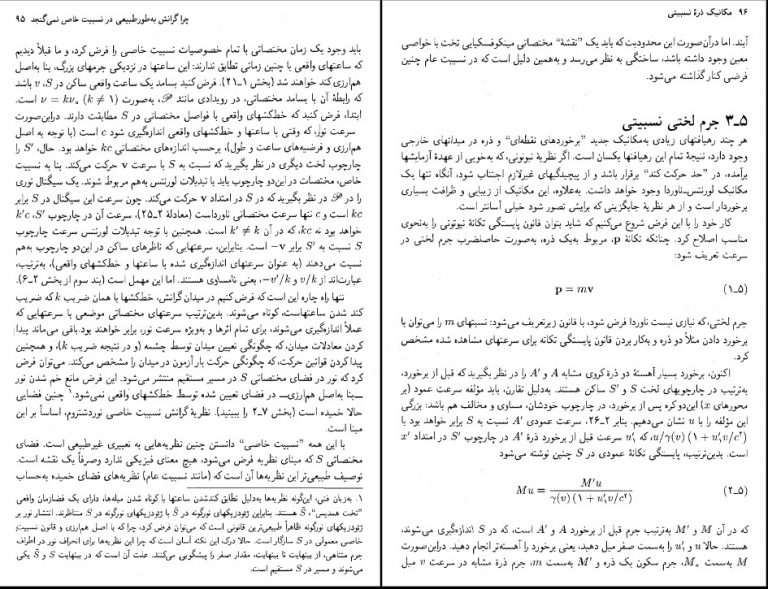 چرا گرانش به‌طور طبیعی در نسبیت خاص نمی‌گنجد ۹۵
باید وجود یک زمان مختصاتی با تمام خصوصیات نسبیت خاصی را فرض کرد، و ما قبلاً دیدیم
که ساعتهای واقعی با چنین زمانی تطابق ندارند: این ساعتها در نزدیکی جرمهای بزرگ، بنا به‌اصل
هم‌ارزی کند خواهند شد (بخش ۱ـ۲۱). فرض کنید بسامد یک ساعت واقعی ساکن در S، ν باشد
که رابطهٔ آن با بسامد مختصاتی، در رویدادی مانند 𝒫، به‌صورت ν = kν₀ (k ≠ ۱) است.
ابتدا، فرض کنید که خط‌کشهای واقعی با فواصل مختصاتی در S مطابقت دارند. دراین‌صورت
سرعت نور، که وقتی با ساعتها و خط‌کشهای واقعی اندازه‌گیری شود c است (با توجه به اصل
هم‌ارزی و فرضیه‌های ساعت و طول)، برحسب اندازه‌های مختصاتی kc خواهد بود. حال، S′ را
چارچوب لخت دیگری در نظر بگیرید که نسبت به S با سرعت v حرکت می‌کند. بنا به نسبیت
خاص، مختصات در این‌دو چارچوب باید با تبدیلات لورنتس به‌هم مربوط شوند. یک سیگنال نوری
را در 𝒫 در نظر بگیرید که در S در امتداد v حرکت می‌کند. چون سرعت این سیگنال در S برابر
kc است و c تنها سرعت مختصاتی ناورداست (معادلهٔ ۲ـ۲۵)، سرعت آن در چارچوب S′، k′c
خواهد بود نه kc، که در آن k′ ≠ k است. همچنین با توجه تبدیلات لورنتس سرعت چارچوب
S نسبت به S′ برابر −v است. بنابراین، سرعتهایی که ناظرهای ساکن در این‌دو چارچوب به‌هم
نسبت می‌دهند (به عنوان سرعتهای اندازه‌گیری شده با ساعتها و خط‌کشهای واقعی)، به‌ترتیب،
عبارت‌اند از v/k و −v/k′، یعنی نامساوی هستند. اما این مهمل است (بند سوم از بخش ۲ـ۶).
تنها راه چاره این است که فرض کنیم در میدان گرانش، خط‌کشها با همان ضریب k که ضریب
کند شدن ساعتهاست، کوتاه می‌شوند. بدین‌ترتیب سرعتهای مختصاتی موضعی با سرعتهایی که
عملاً اندازه‌گیری می‌شوند، برای تمام اثرها و به‌ویژه سرعت نور، برابر خواهند بود. باقی می‌ماند پیدا
کردن معادلات میدان، که چگونگی تعیین میدان توسط چشمه (و در نتیجه ضریب k)، و همچنین
پیدا کردن قوانین حرکت، که چگونگی حرکت بار آزمون در میدان را مشخص می‌کند. می‌توان فرض
کرد که نور در فضای مختصاتی S در مسیر مستقیم منتشر می‌شود. این فرض مانع خم شدن نور
ــ‌بنا به‌اصل هم‌ارزی‌ــ در فضای تعیین شده توسط خط‌کشهای واقعی نمی‌شود.۱ چنین فضایی
حالا خمیده است (بخش ۷ـ۲ را ببینید). نظریهٔ گرانش نسبیت خاصی نوردشتروم، اساساً بر این
مبنا است.
با این همه «نسبیت خاصی» دانستن چنین نظریه‌هایی به تعبیری غیرطبیعی است. فضای
مختصاتی S که مبنای نظریه فرض می‌شود، هیچ معنای فیزیکی ندارد و صرفاً یک نقشه است.
توصیف طبیعی‌تر این نظریه‌ها آن است که (مانند نسبیت عام) نظریه‌های فضای خمیده به‌حساب
۱. به‌زبان فنی، این‌گونه نظریه‌ها به‌دلیل تطابق کندشدن ساعتها با کوتاه شدن میله‌ها، دارای یک فضازمان واقعی
«تخت همدیس»، S̃ هستند. بنابراین ژئودزیهای نورگونه در S̃ با ژئودزیهای نورگونه در S متناظرند. انتشار نور بر
ژئودزیهای نورگونه ظاهراً طبیعی‌ترین قانونی است که می‌توان فرض کرد، چرا که با اصل هم‌ارزی و قانون نسبیت
خاصی معمولی در S سازگار است. حالا درک این نکته آسان است که چرا این نظریه‌ها برای انحراف نور در اطراف
جرم متناهی، از بینهایت تا بینهایت، مقدار صفر را پیشگویی می‌کنند. علت آن است که در بینهایت S و S̃ یکی
می‌شوند و مسیر در S مستقیم است.
۹۶ مکانیک ذرهٔ نسبیتی
آیند. اما درآن‌صورت این محدودیت که باید یک «نقشهٔ» مختصاتی مینکوفسکیایی تخت با خواصی
معین وجود داشته باشد، ساختگی به نظر می‌رسد و به‌همین دلیل است که در نسبیت عام چنین
فرضی کنار گذاشته می‌شود.
۵ـ۳ جرم لختی نسبیتی
هر چند رهیافتهای زیادی به‌مکانیک جدید «برخوردهای نقطه‌ای» و ذره در میدانهای خارجی
وجود دارد، نتیجهٔ تمام این رهیافتها یکسان است. اگر نظریهٔ نیوتونی، که به‌خوبی از عهدهٔ آزمایشها
برآمده، در «حد حرکت کند» برقرار باشد و از پیچیدگیهای غیرلازم اجتناب شود، آنگاه تنها یک
مکانیک لورنتس‌ـ‌ناوردا وجود خواهد داشت. به‌علاوه، این مکانیک از زیبایی و ظرافت بسیاری
برخوردار است و از هر نظریهٔ جایگزینی که برایش تصور شود خیلی آسانتر است.
کار خود را با این فرض شروع می‌کنیم که شاید بتوان قانون پایستگی تکانهٔ نیوتونی را به‌نحوی
مناسب اصلاح کرد. چنانکه تکانهٔ p، مربوط به‌یک ذره، به‌صورت حاصلضرب جرم لختی در
سرعت تعریف شود:
p = mv (۵ـ۱)
جرم لختی، که نیازی نیست ناوردا فرض شود، با قانون زیر تعریف می‌شود: نسبتهای m را می‌توان با
برخورد دادن مثلاً دو ذره و به‌کار بردن قانون پایستگی تکانه برای سرعتهای مشاهده شده مشخص
کرد.
اکنون، برخورد بسیار آهستهٔ دو ذرهٔ کروی مشابه A و A′ را در نظر بگیرید که قبل از برخورد،
به‌ترتیب در چارچوبهای لخت S و S′ ساکن هستند. به‌دلیل تقارن، باید مؤلفه سرعت عمود (بر
محورهای x) این‌دو کره پس از برخورد، در چارچوب خودشان، مساوی و مخالف هم باشد: بزرگی
این مؤلفه را با u نشان می‌دهیم. بنابر ۲ـ۲۶، سرعت عمودی A′ نسبت به S برابر خواهد بود با
u/γ(v) (۱ + u′₁v/c²)، که u′₁ سرعت قبل از برخورد ذرهٔ A′ در چارچوب S′ در امتداد x′
است. بدین‌ترتیب، پایستگی تکانهٔ عمودی در S چنین نوشته می‌شود
Mu = M′u / γ(v) (۱ + u′₁v/c²) (۵ـ۲)
که در آن M و M′ به‌ترتیب جرم قبل از برخورد A و A′ است، که در S اندازه‌گیری می‌شوند،
هستند. حالا u و u′₁ را به‌سمت صفر میل دهید، یعنی برخورد را آهسته‌تر انجام دهید. دراین‌صورت
M به‌سمت M₀، جرم سکون یک ذره و M′ به‌سمت m، جرم ذرهٔ مشابه در سرعت v میل